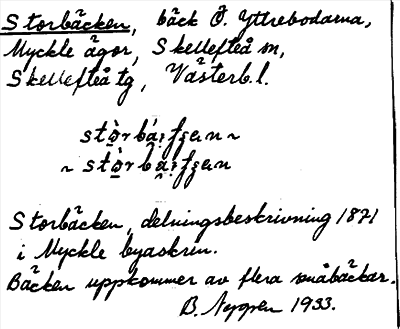 Storbäcken, bäck Ö. Yttrebodarna,
Myckle ägor, Skellefteå sn,
Skellefteå tg, Västerb. l.
Storbäcken, delningsbeskrivning 1871
i Myckle byaskrin.
Bäcken uppkommer av flera småbäckar.
B. 1933.